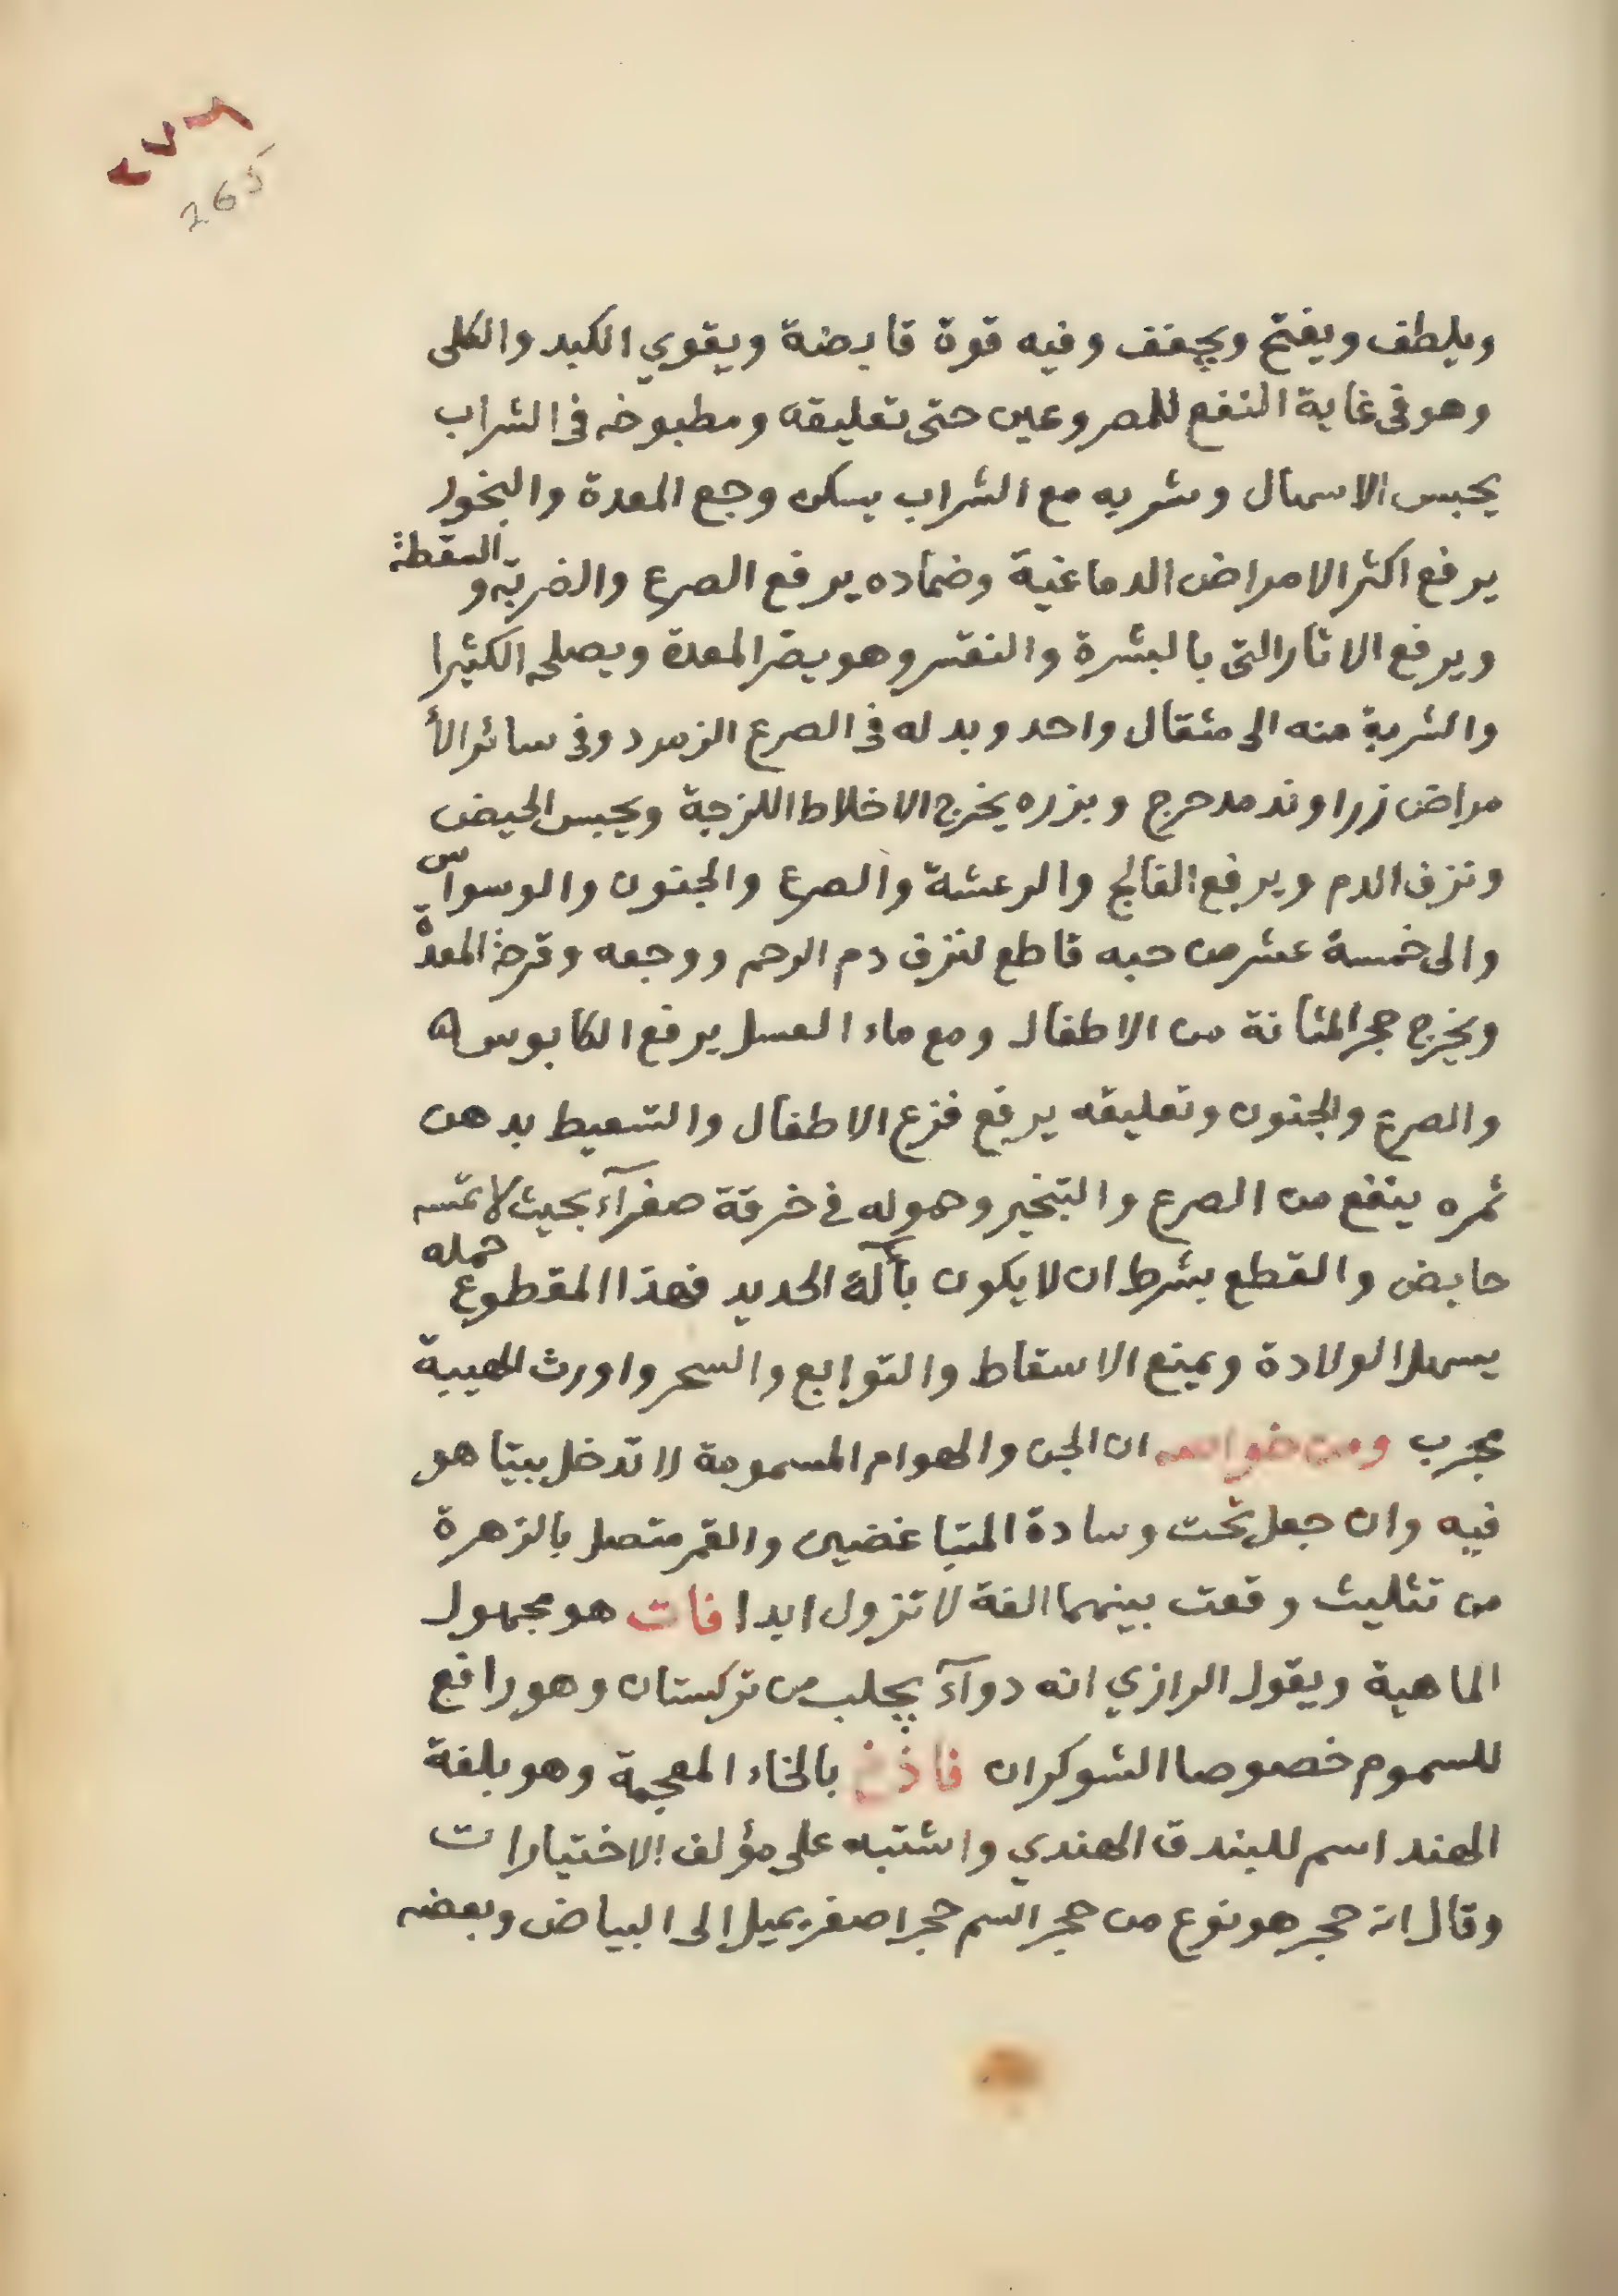 ٢٧٦
265
ويلطف ويفتح ويجفف وفيه قوة قابضة ويقوي الكبد والكلى
وهو فى غاية النفع للمصروعين حتى تعليقه ومطبوخه فى الشراب
يحبس الاسهال وشربه مع الشراب يسكن وجع المعدة والبخور
يرفع اكثر الامراض الدماغية وضماده يرفع الصرع والضربة و السقطة
ويرفع الاثار التى بالبشرة والنقرس وهو يضر المعدة ويصلحه الكثيرا
والشربة منه الى مثقال واحد وبدله فى الصرع الزمرد وفى سائر الأ
مراض زراوند مدحرج وبزره يخرج الاخلاط اللزجة ويحبس الحيض
ونزف الدم ويرفع الفالج والرعشة والصرع والجنون والوسواس
والى خمسة عشر من حبه قاطع لنزف دم الرحم ووجعه وقرحة المعدة
ويخرج حجر المثانة من الاطفال ومع ماء العسل يرفع الكابوس
والصرع والجنون وتعليقه يرفع فزع الاطفال والتسعيط بدهن
ثمره ينفع من الصرع والتبخير وحموله فى خرقة صفرآء بحيث لا تمسه
حايض والقطع بشرط ان لا يكون بآلة الحديد فهذا المقطوع حمله
يسهل الولادة ويمنع الاسقاط والتوابع والسحر واورث الهيبة
مجرب ومن خواصه ان الجن والهوام المسمومة لا تدخل بيتا هو
فيه وان جعل تحت وسادة المتباغضين والقمر متصل بالزهرة
من تثليث وقعت بينهما الفة لا تزول ابدا فات هو مجهول
الماهية ويقول الرازي انه دوآء يجلب من تركستان وهو رافع
للسموم خصوصا الشوكران فاذخ بالخاء المعجمة وهو بلغة
الهند اسم للبندق الهندي واشتبه على مؤلف الاختيارات
وقال انه حجر هو نوع من حجر السم حجر اصفر يميل إلى البياض وبعضه